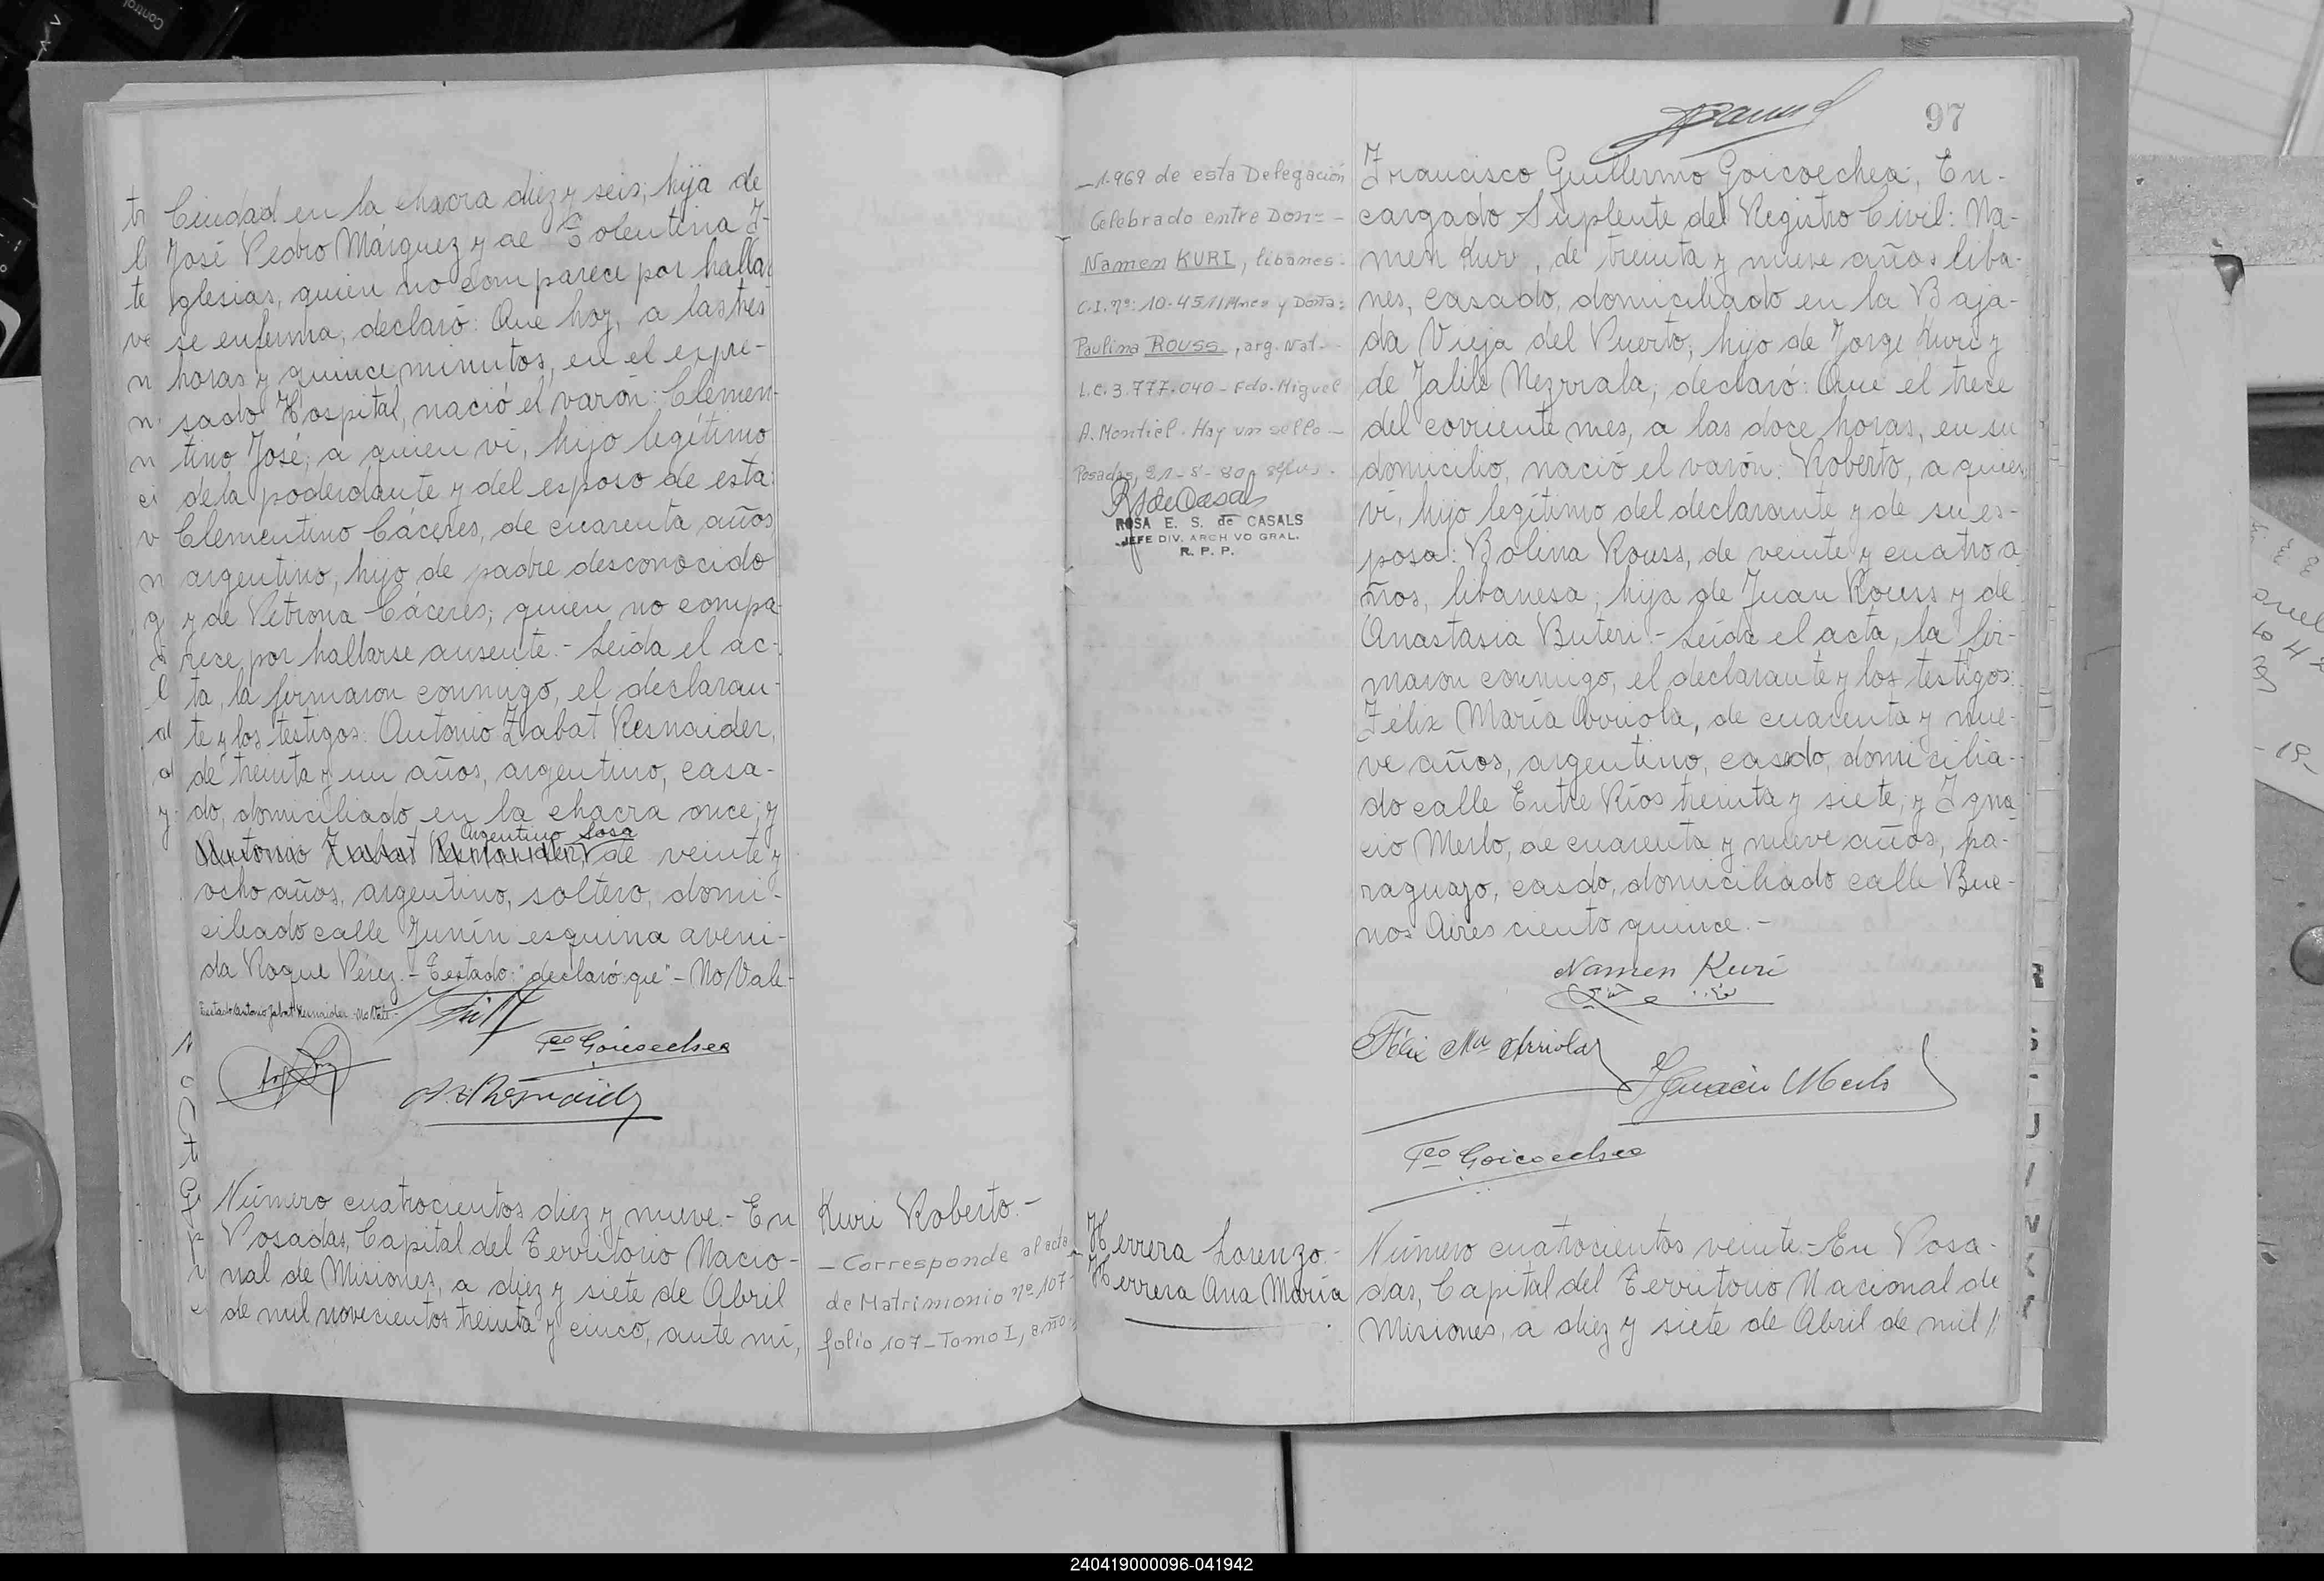 Ciudad en la chacra diez y seis, hija de
José Pedro Márquez y de Tolentina I-
glesias, quien no comparece por hallar
se enferma, declaró: Que hoy, a las tres
horas y quince minutos, en el expre-
sado Hospital, nació el varón: Clemen-
tino José, a quien vi, hijo legítimo
de la poderdante y del esposo de esta:
Clementino Cáceres, de cuarenta años,
argentino, hijo de padre desconocido
y de Petrona Cáceres; quien no compa-
rece por hallarse ausente.- Leída el ac-
ta, la firmaron conmigo, el declaran-
te y los testigos: Antonio Zabat Resnaider,
de treinta y un años, argentino, casa-
do, domiciliado en la chacra once; y
Argentino Sosa
Antonio Zabat Resnaider, de veinte y
ocho años, argentino, soltero, domi-
ciliado calle Junín esquina aveni-
da Roque Pérez.- Testado: "declaró que"- No Vale-
Testado: Antonio Zabat Resnaider - No Vale-
Fco Goicoechea
Número cuatrocientos diez y nueve.- En
Posadas, Capital del Territorio Nacio-
nal de Misiones, a diez y siete de Abril
de mil novecientos treinta y cinco, ante mi,
Kuri Roberto.-
- Corresponde al acta
de Matrimonio nº 107-
folio 107- Tomo I, año
97
- 1.969 de esta Delegación
Celebrado entre Don:-
Namen KURI, libanes-
C.I. nº: 10.451 Mnes y Doña:
Paulina ROUSS, arg. Nat.-
L.C. 3.777.040 - Fdo. Miguel
A. Montiel. Hay un sello-
Posadas, 21-8-80
RSdeCasals
ROSA E. S. de CASALS
JEFE DIV. ARCHIVO GRAL.
R. P. P.
Francisco Guillermo Goicoechea, En-
cargado Suplente del Registro Civil: Na-
men Kuri, de treinta y nueve años liba-
nes, casado, domiciliado en la Baja-
da Vieja del Puerto, hijo de Jorge Kuri y
de Jalile Nezrrala, declaró: Que el trece
del corriente mes, a las doce horas, en su
domicilio, nació el varón: Roberto, a quien
vi, hijo legítimo del declarante y de su es-
posa: Bolina Rouss, de veinte y cuatro a
ños, libanesa, hija de Juan Rouss y de
Anastasia Buteri.- Leída el acta, la fir-
maron conmigo, el declarante y los testigos:
Félix María Arriola, de cuarenta y nue-
ve años, argentino, casado, domicilia-
do calle Entre Ríos treinta y siete; y Igna
cio Merlo, de cuarenta y nueve años, pa-
raguayo, casdo, domiciliado calle Bue-
nos Aires ciento quince.-
Namen Kuri
Félix Ma Arriola
Ignacio Merlo
Fco Goicoechea
Herrera Lorenzo.-
Herrera Ana María
Número cuatrocientos veinte.- En Posa-
das, Capital del Territorio Nacional de
Misiones, a diez y siete de Abril de mil //
240419000096-041942